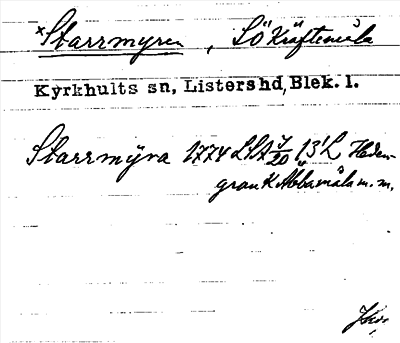 ×Starrmyren, SÖ Kräftemåla
Kyrkhults sn, Listers hd, Blek. l.
Starrmyra 1774 LSA J/20 "13'L Heden-
gran K Abbamåla m.m.